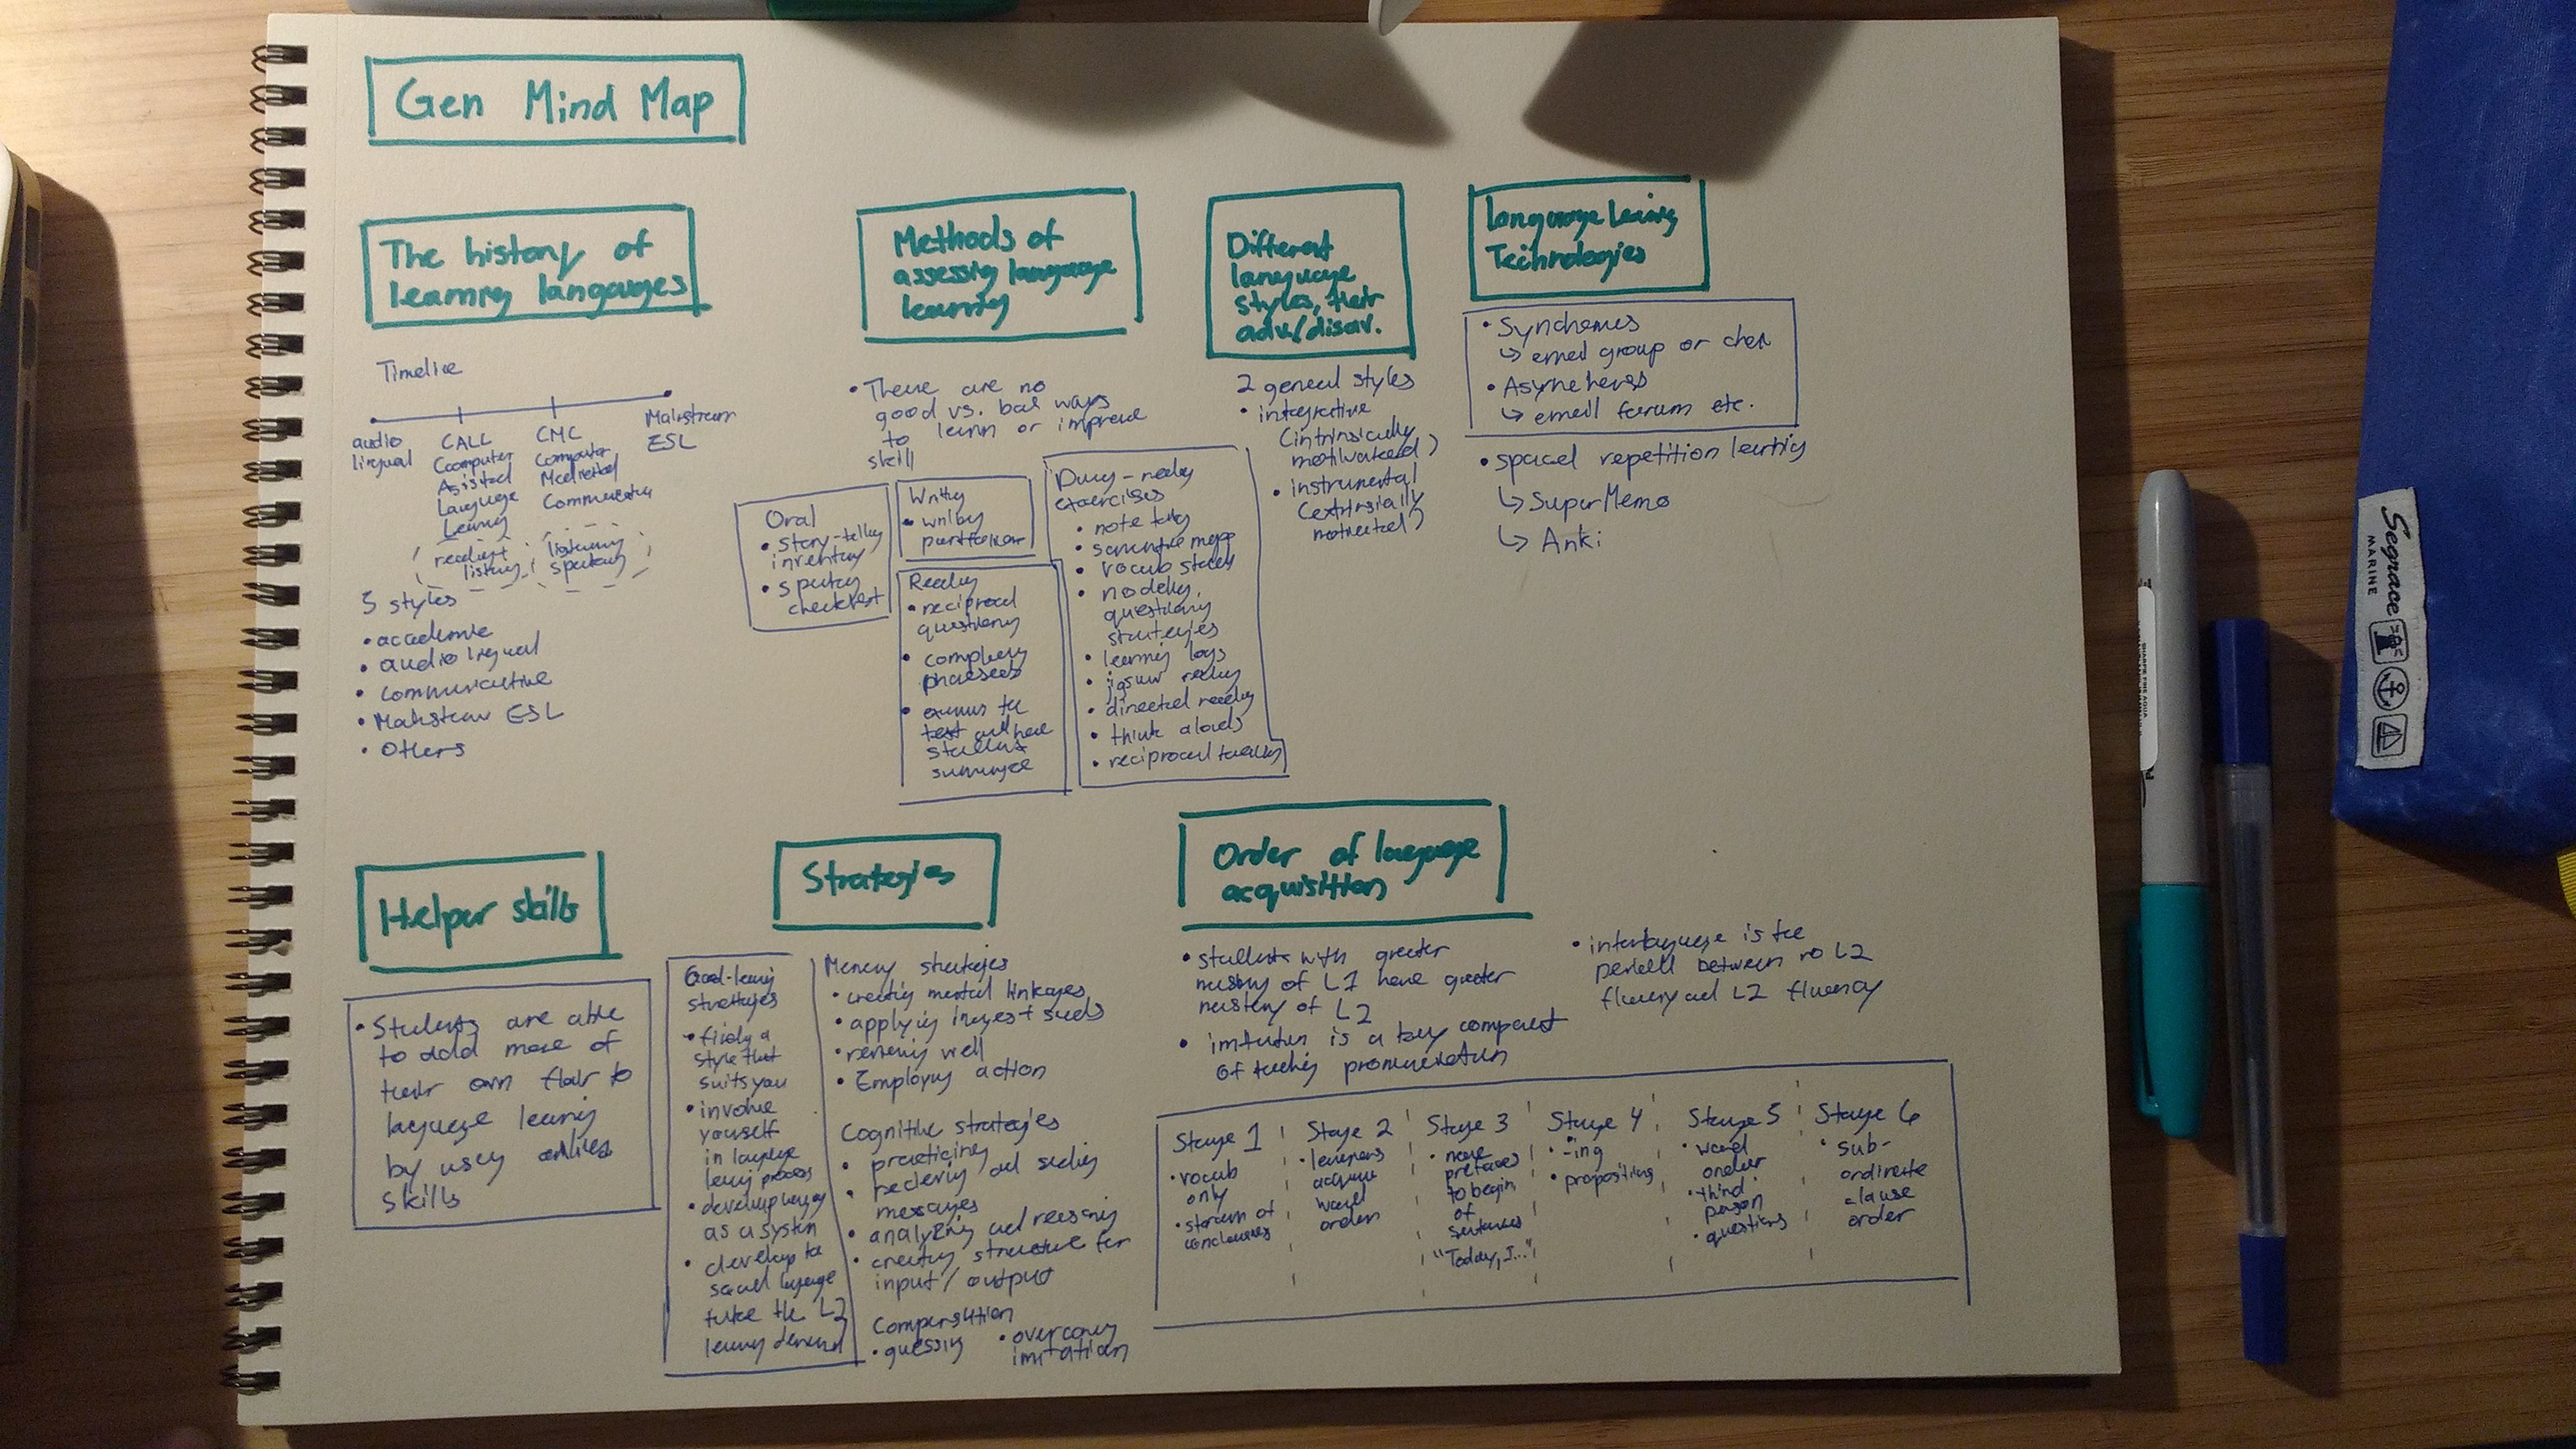 Gen Mind Map
The history of
learning langauges
Timeline
audio
lingual
CALL
Computer
Assisted
Language
Learning
CMC
Computer
Mediated
Mainstream
ESL
listening
speaking
5 styles
• academic
• audio lingual
• communicative
• Mainstream ESL
• Others
Methods of
assessing language
learning
• There are no
good vs. bad ways
to learn or improve
skill
Oral
• story-telling
inventory
• speaking
checklist
Writing
• writing
Reading
• reciprocal
questioning
exercises
• note taking
• vocab
questioning
strategies
• learning logs
• jigsaw reading
• directed reading
• think alouds
• reciprocal teaching
Different
language
styles, their
adv./disav.
2 general styles
• integrative
(intrinsically
motivated)
• instrumental
(extrinsically
motivated)
Language Learning
Technologies
↳ email group or
↳ email forum etc.
• spaced repetition learning
↳ SuperMemo
↳ Anki
Helper skills
• Students are able
to add more of
their own flair to
language learning
by using
skills
Strategies
Good-learning
strategies
• finding a
style that
suits you
• involve
yourself
in language
learning process
as a system
Memory strategies
• creating mental linkages
• reviewing well
• Employing action
Cognitive strategies
• practicing
• recieving and sending
messages
• analyzing and reasoning
• creating structure for
input / output
• guessing
• overcoming
Order of language
acquisition
• students with greater
mastery of L1 have greater
mastery of L2
is a key component
of teaching pronunciation
• interlanguage is the
period between no L2
fluency and L2 fluency
Stage 1
• vocab
only
Stage 2
• learners
acquire
word
order
Stage 3
to begin
of
sentences
"Today, I..."
Stage 4
• -ing
Stage 5
• word
order
• third
person
• questions
Stage 6
• sub-
ordinate
clause
order
Segrace
MARINE